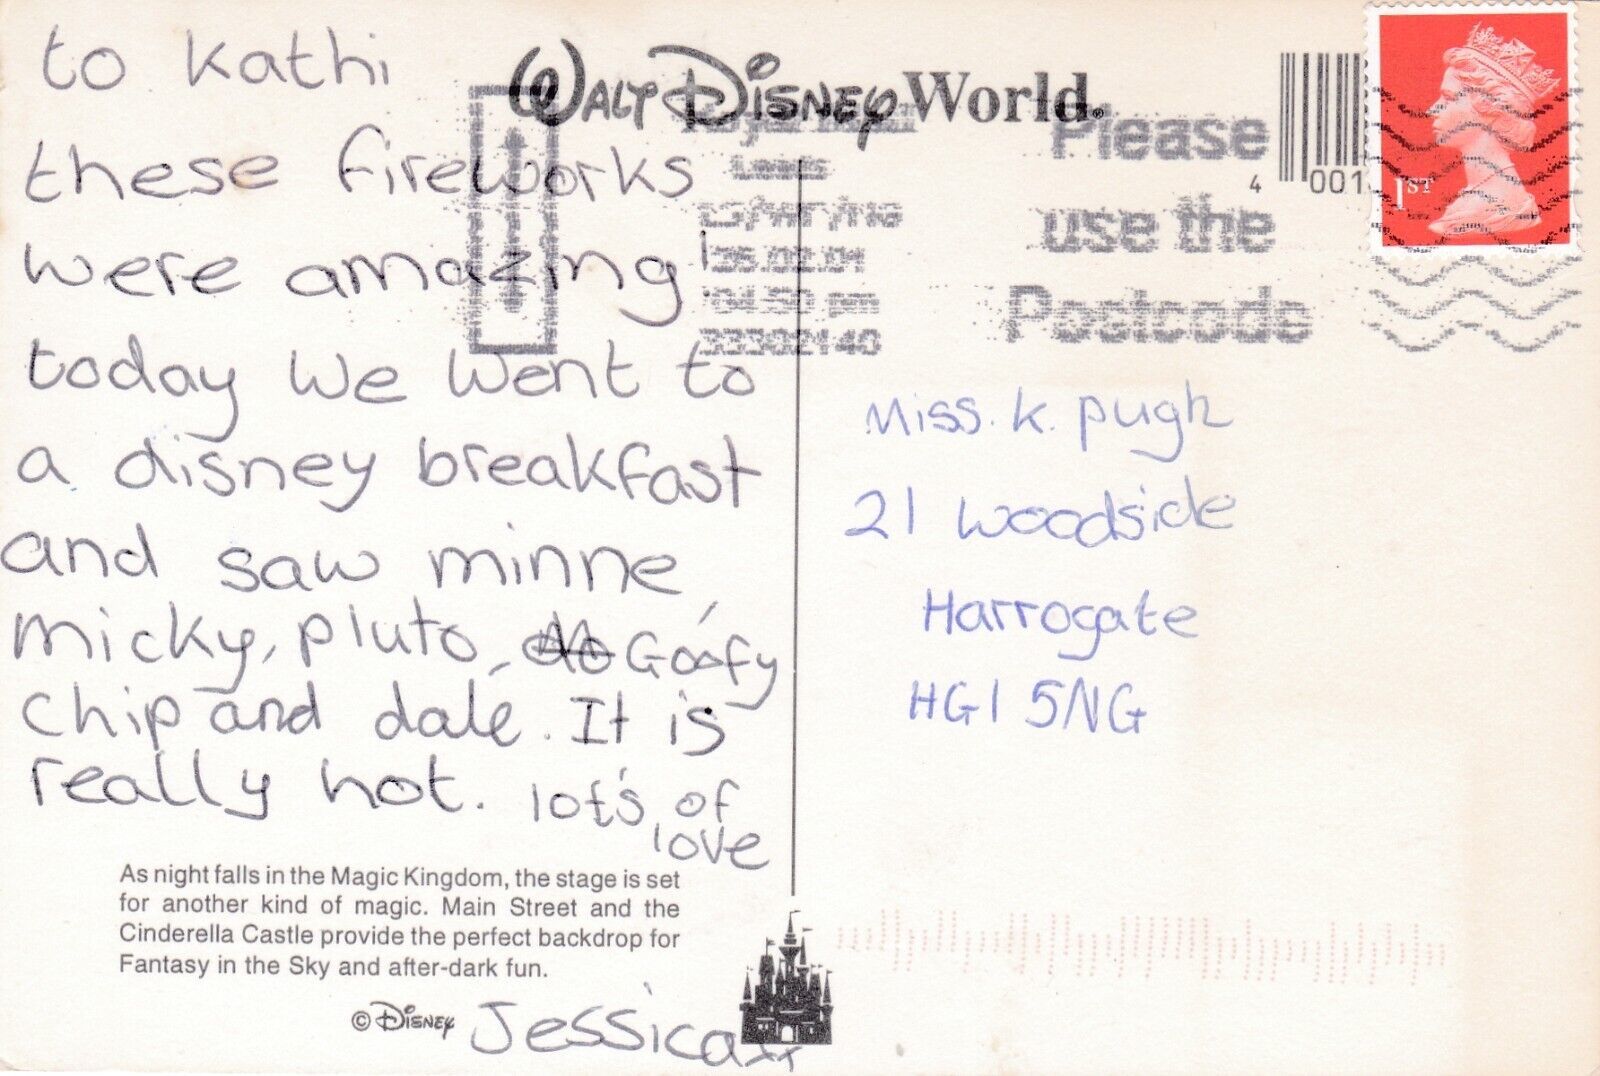 to Kathi
these fireworks
were amazing!
today we went to
a disney breakfast
and saw minne,
micky, pluto, Goofy
chip and dale. It is
really hot. lot's of
love
Jessica xx
As night falls in the Magic Kingdom, the stage is set
for another kind of magic. Main Street and the
Cinderella Castle provide the perfect backdrop for
Fantasy in the Sky and after-dark fun.
© Disney
WALT DISNEY World®
Leeds
Please
use the
Postcode
4
001
1ST
Miss. K. Pugh
21 Woodside
Harrogate
HG1 5NG